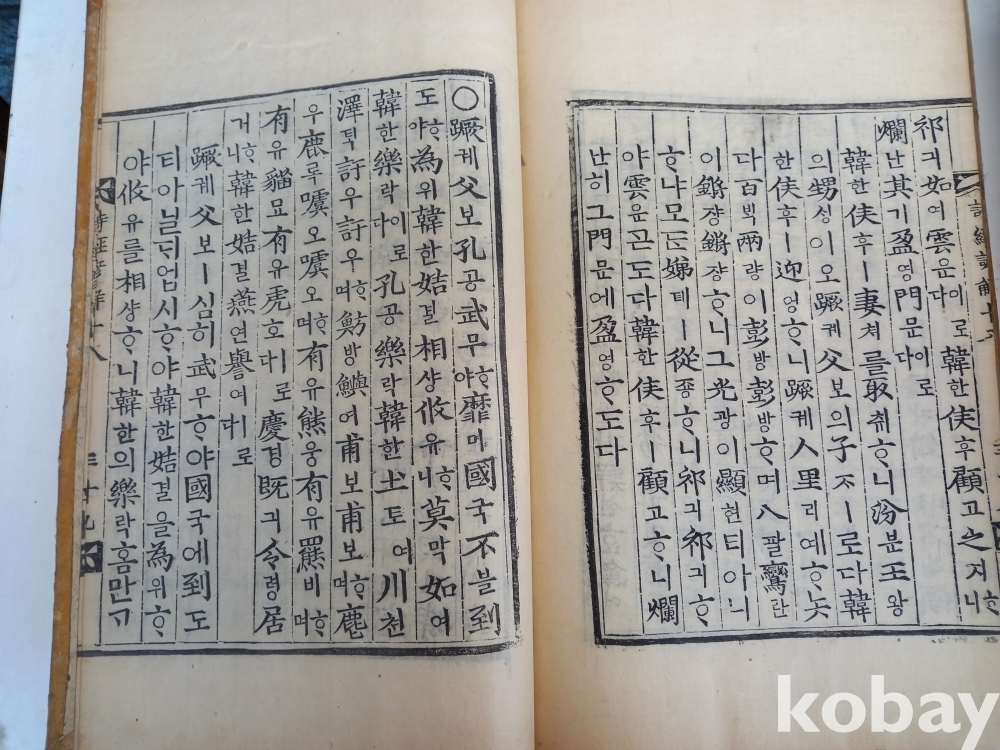 祁긔如여雲운이로다韓한侯후顧고之지ᄒᆞ니
爛난其기盈영門문이로다
韓한侯후ㅣ妻쳐를取ᄎᆔᄒᆞ니汾분王왕
의甥ᄉᆡᆼ이오蹶궤父보의子ᄌᆞㅣ로다韓
한侯후ㅣ迎영ᄒᆞ니蹶궤人里리예ᄒᆞ놋
다百ᄇᆡᆨ兩량이彭방彭방ᄒᆞ며八팔鸞란
이鏘쟝鏘쟝ᄒᆞ니그光광이顯현티아니
ᄒᆞ냐모든娣뎨ㅣ從종ᄒᆞ니祁긔祁긔ᄒᆞ
야雲운ᄀᆞᆮ도다韓한侯후ㅣ顧고ᄒᆞ니爛
난히그門문에盈영ᄒᆞ도다
〇蹶궤父보孔공武무ᄒᆞ야靡미國국不블到
도ᄒᆞ야為위韓한姞길相샹攸유ᄒᆞ니莫막如여
韓한樂락이로다孔공樂락韓한土토여川쳔
澤ᄐᆡᆨ訏우訏우ᄒᆞ며魴방鱮여甫보甫보ᄒᆞ며麀
우鹿록噳오噳오ᄒᆞ며有유熊웅有유羆비ᄒᆞ며
有유貓묘有유虎호로다慶경既긔令령居
거ᄒᆞ니韓한姞길燕연譽여로다
蹶궤父보ㅣ심히武무ᄒᆞ야國국에到도
티아닐ᄃᆡ업시ᄒᆞ야韓한姞길을為위ᄒᆞ
야攸유를相샹ᄒᆞ니韓한의樂락홈만ᄀᆞ
詩經諺解十八
二十九
kobay